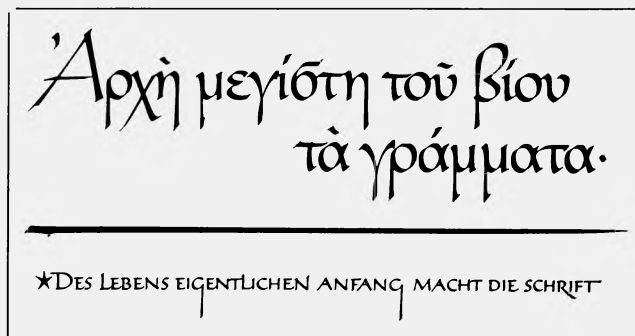 Ἀρχὴ μεγίστη τοῦ βίου
τὰ γράμματα·
★DES LEBENS EIGENTLICHEN ANFANG MACHT DIE SCHRIFT